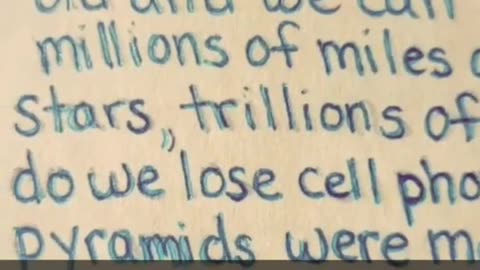 old and we can
millions of miles
stars,, trillions of
do we lose cell
pyramids were